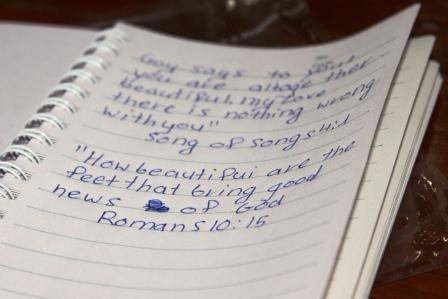 Goy says to you"
you are altoge ther
beautiful, my love
there is nothing wrong
with you"
Song of Songs 4:d
"How beautifui are the
feet that bring good
news of God
Romans 10:15